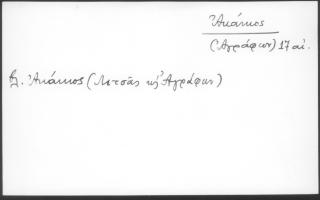 Ἀκάκιος
(Ἀγράφων) 17 αἰ.
βλ. Ἀκάκιος (Λιτσᾶς κ' Ἀγράφων)